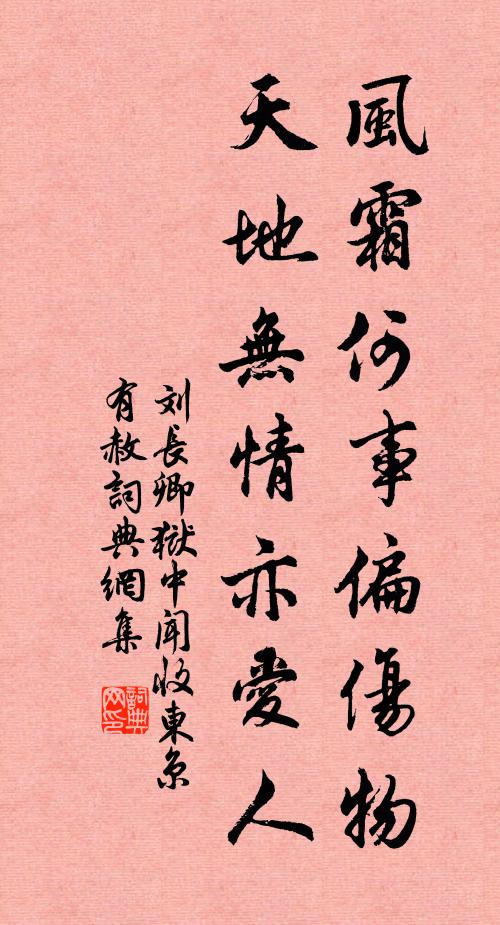 風霜何事偏傷物
天地無情亦愛人
刘長卿獄中闻收東京
有赦詞典網集
詞典
网印